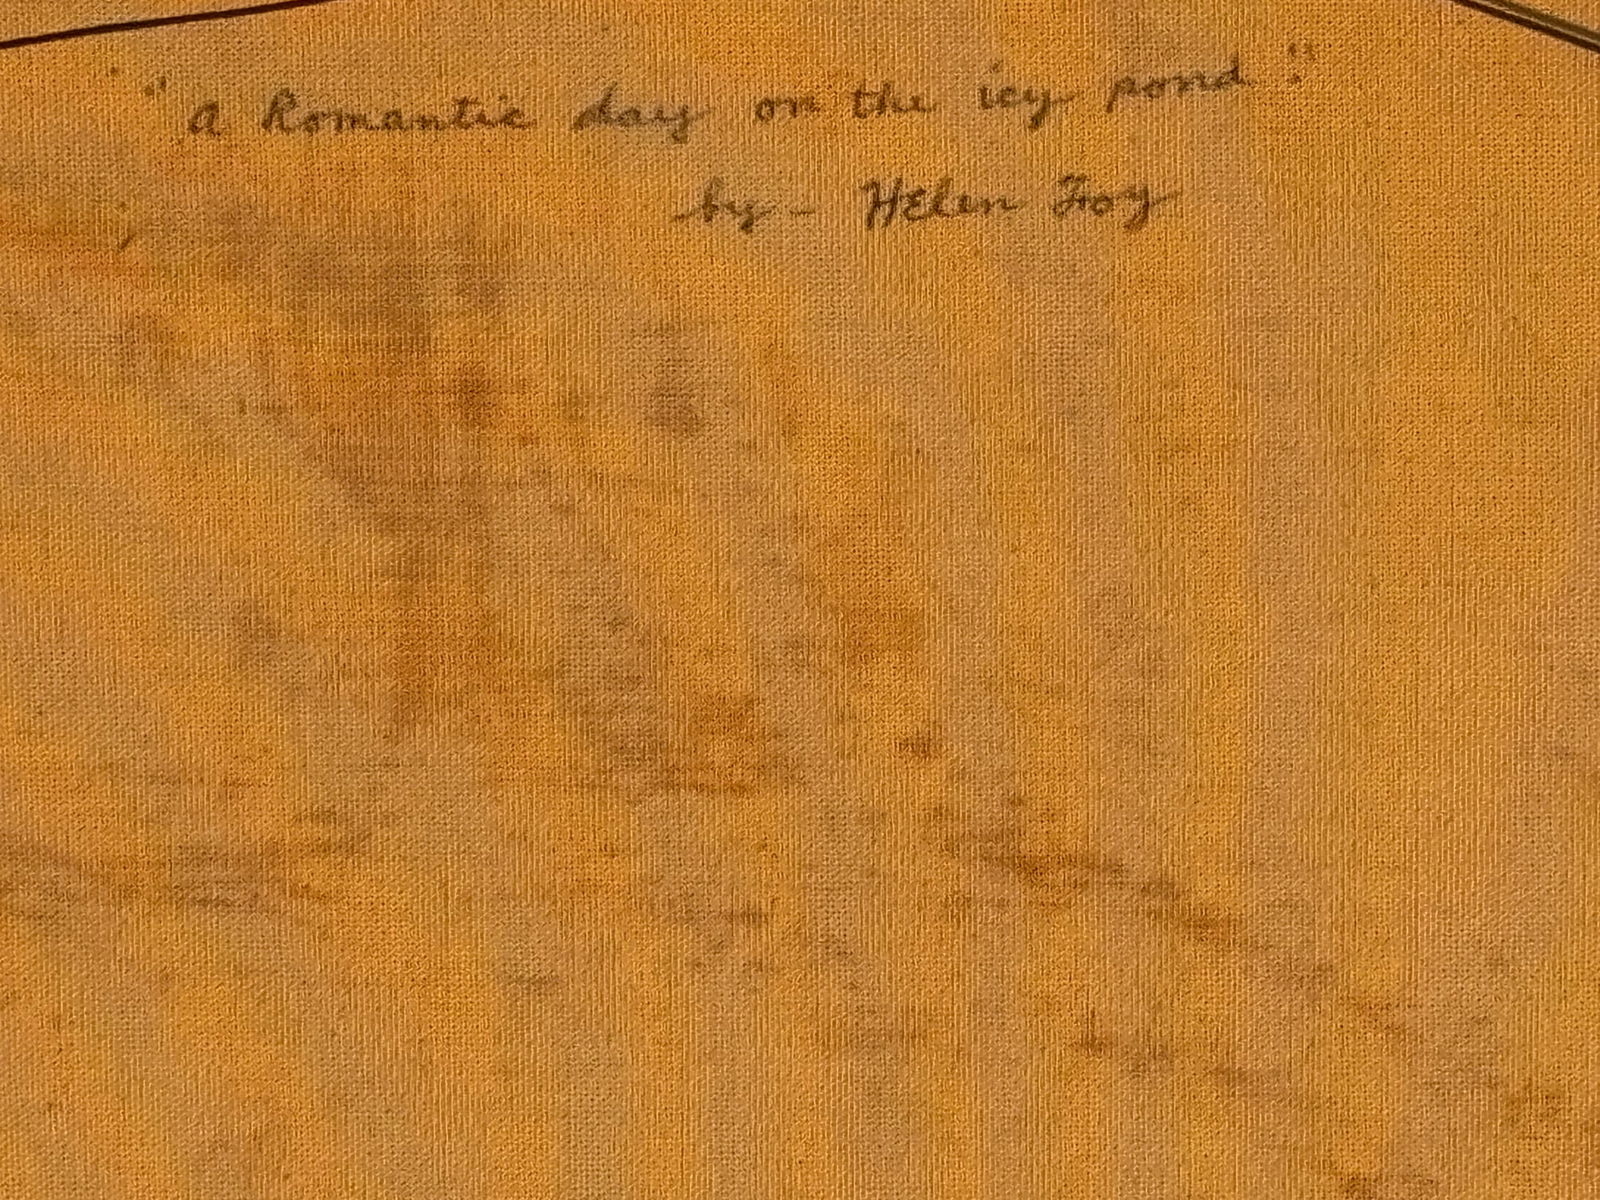 "A Romantic day on the icy pond."
by - HElen Foy